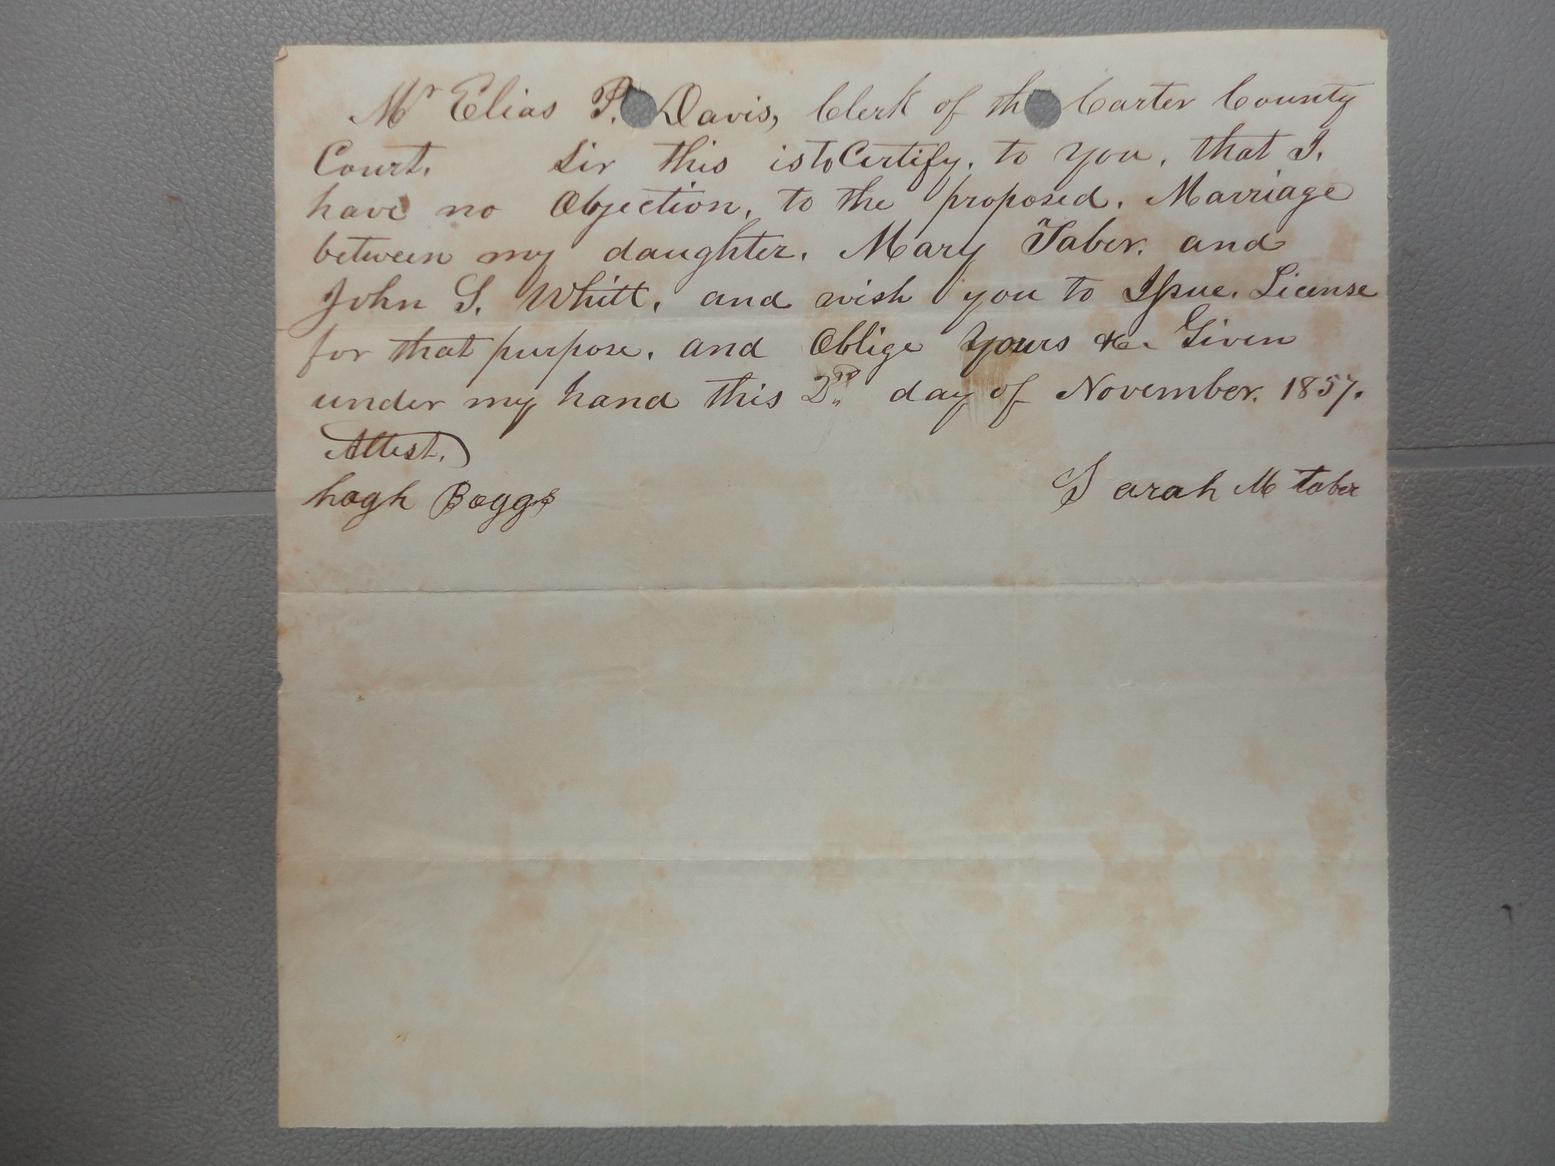 Mr Elias P. Davis, Clerk of th Carter County
Court. Sir this is to Certify, to you, that I.
have no Objection, to the proposed. Marriage
between my daughter. Mary Taber. and
John S. Whitt, and wish you to Issue. License
for that purpose. and Oblige yours &c. Given
under my hand this 2D. day of November. 1857.
Attest.
hogh Boggs
Sarah M taber